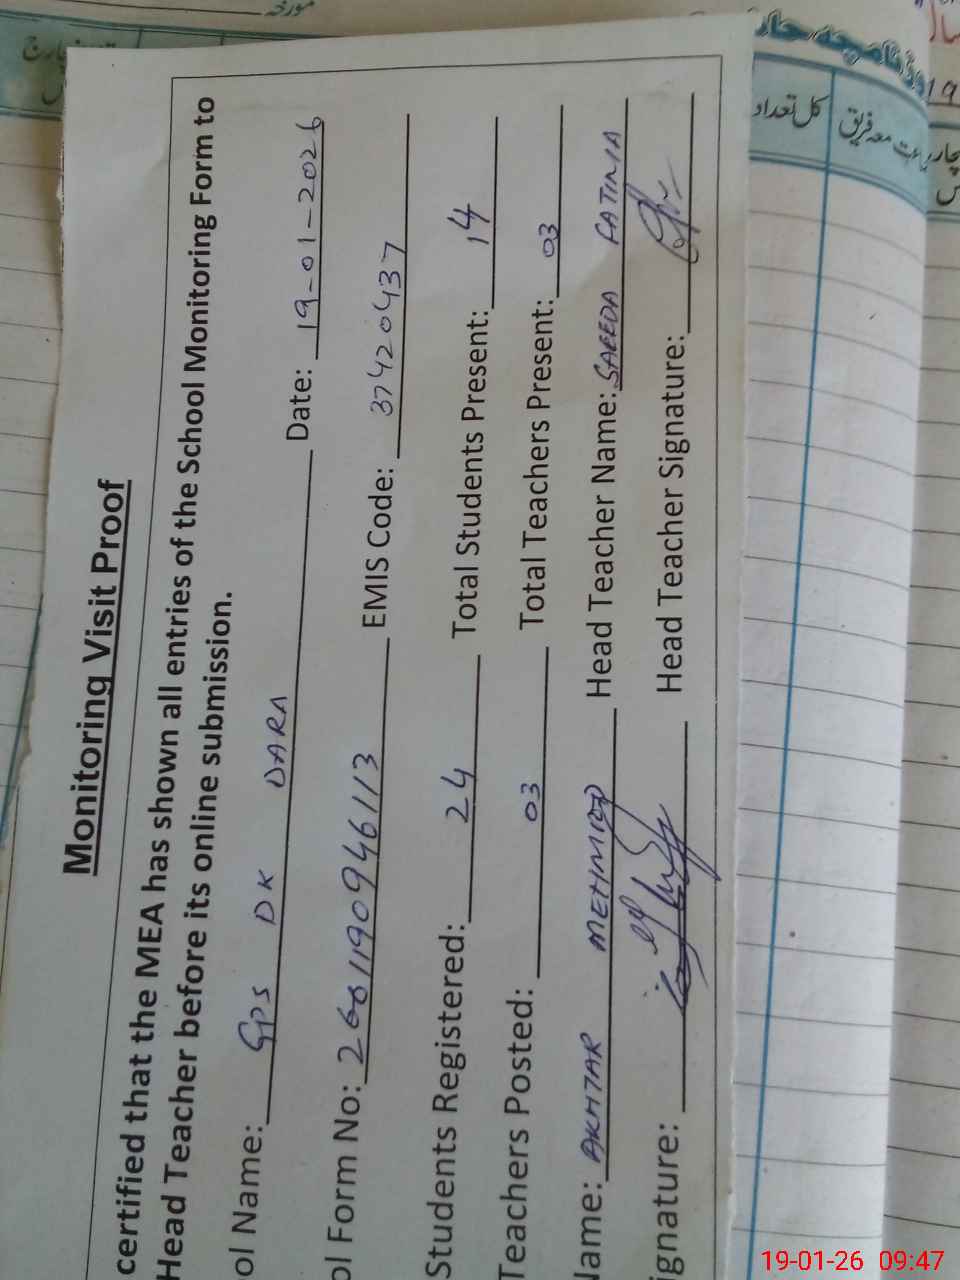 Monitoring Visit Proof
certified that the MEA has shown all entries of the School Monitoring Form to
Head Teacher before its online submission.
ol Name: GPS DK DARA Date: 19-01-2026
ol Form No: EMIS Code: 37420437
Students Registered: 24 Total Students Present: 14
Teachers Posted: 03 Total Teachers Present: 03
Name: AKHTAR MEHMOOD Head Teacher Name: SAEEDA FATIMA
ignature: Head Teacher Signature:
مورخہ
کل تعداد
19-01-26 09:47